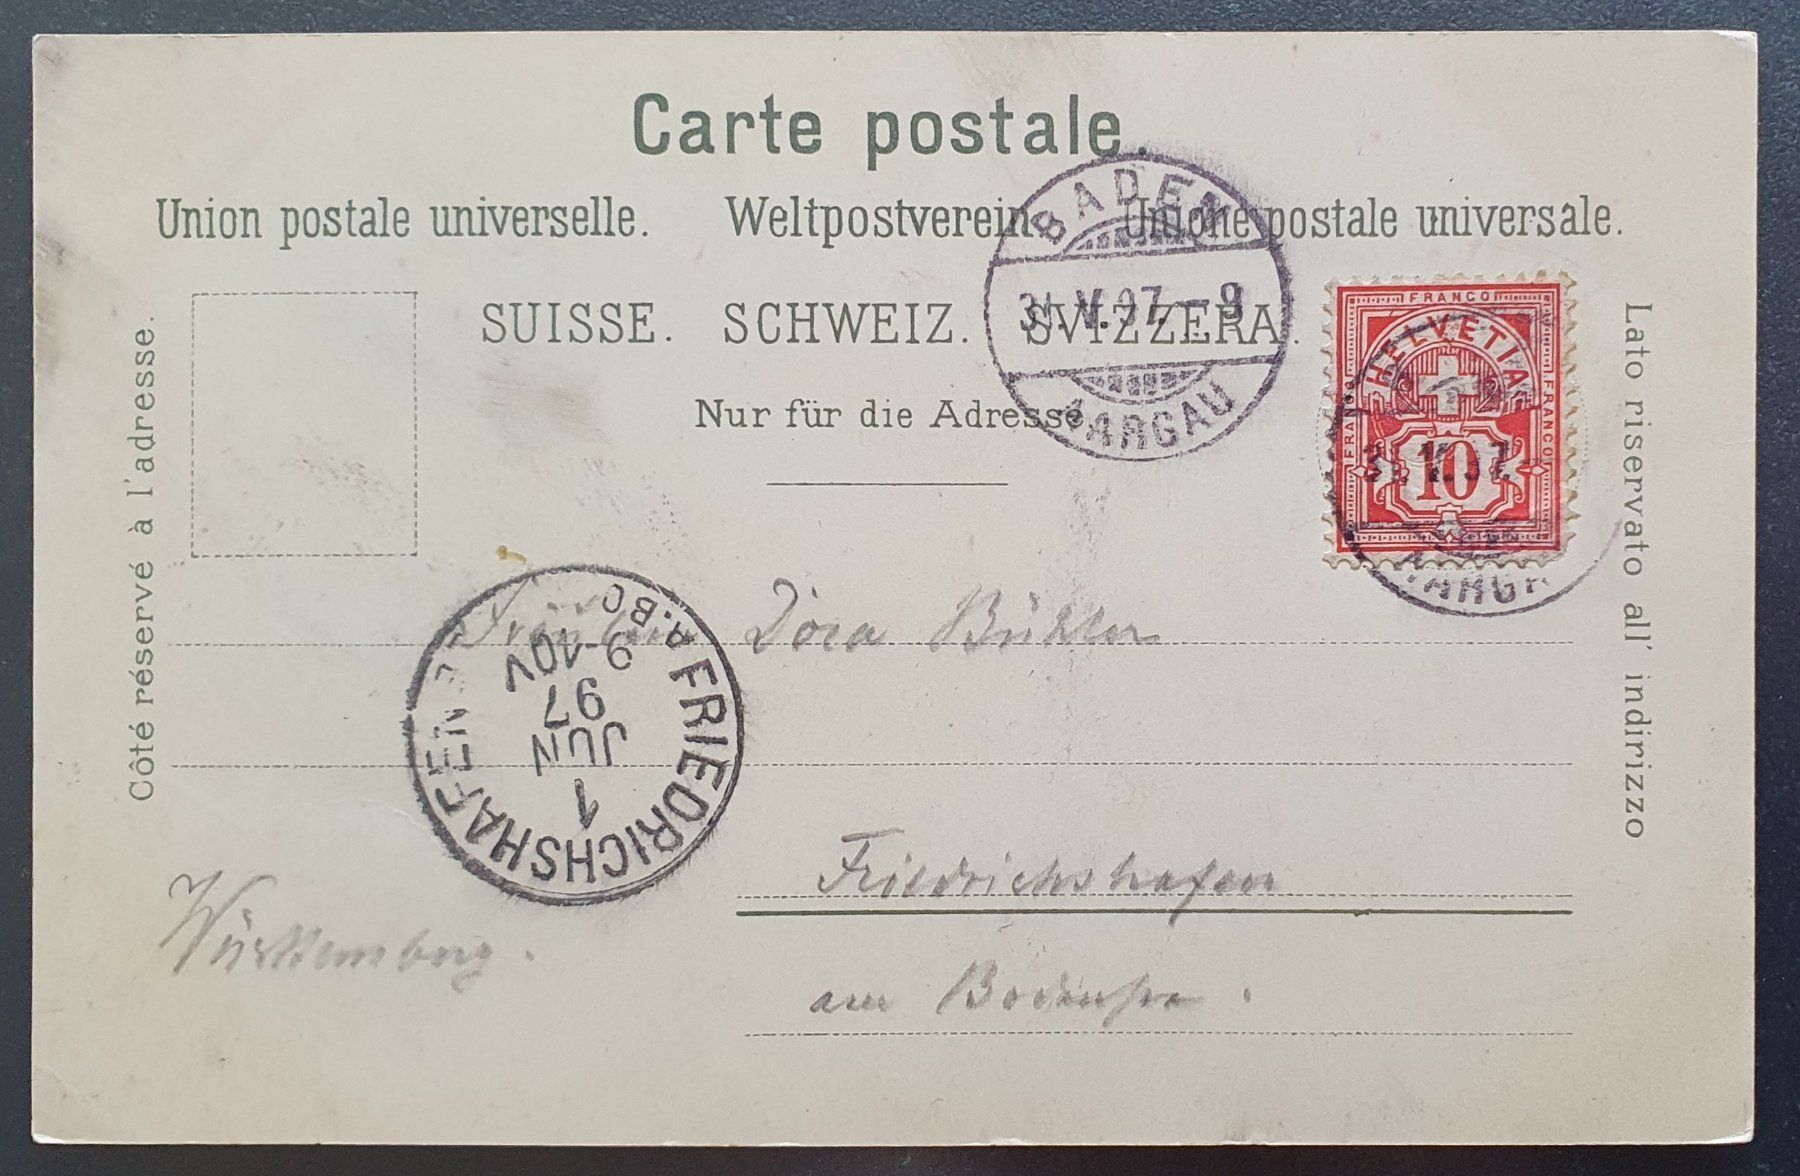 Carte postale.
Union postale universelle. Weltpostverein. Unione postale universale.
SUISSE. SCHWEIZ. SVIZZERA.
Nur für die Adresse
Côté réservé à l'adresse.
Lato riservato all' indirizzo
BADEN
31.V.97.–9
AARGAU
FRANCO
FRANCO
FRANCO
HELVETIA
10
31.V.97.
AARGA
Fräulein Dora Bühler
Friedrichshafen
am Bodensee.
Württemberg.
FRIEDRICHSHAFEN
1
JUN
97
9-10V
A.BO